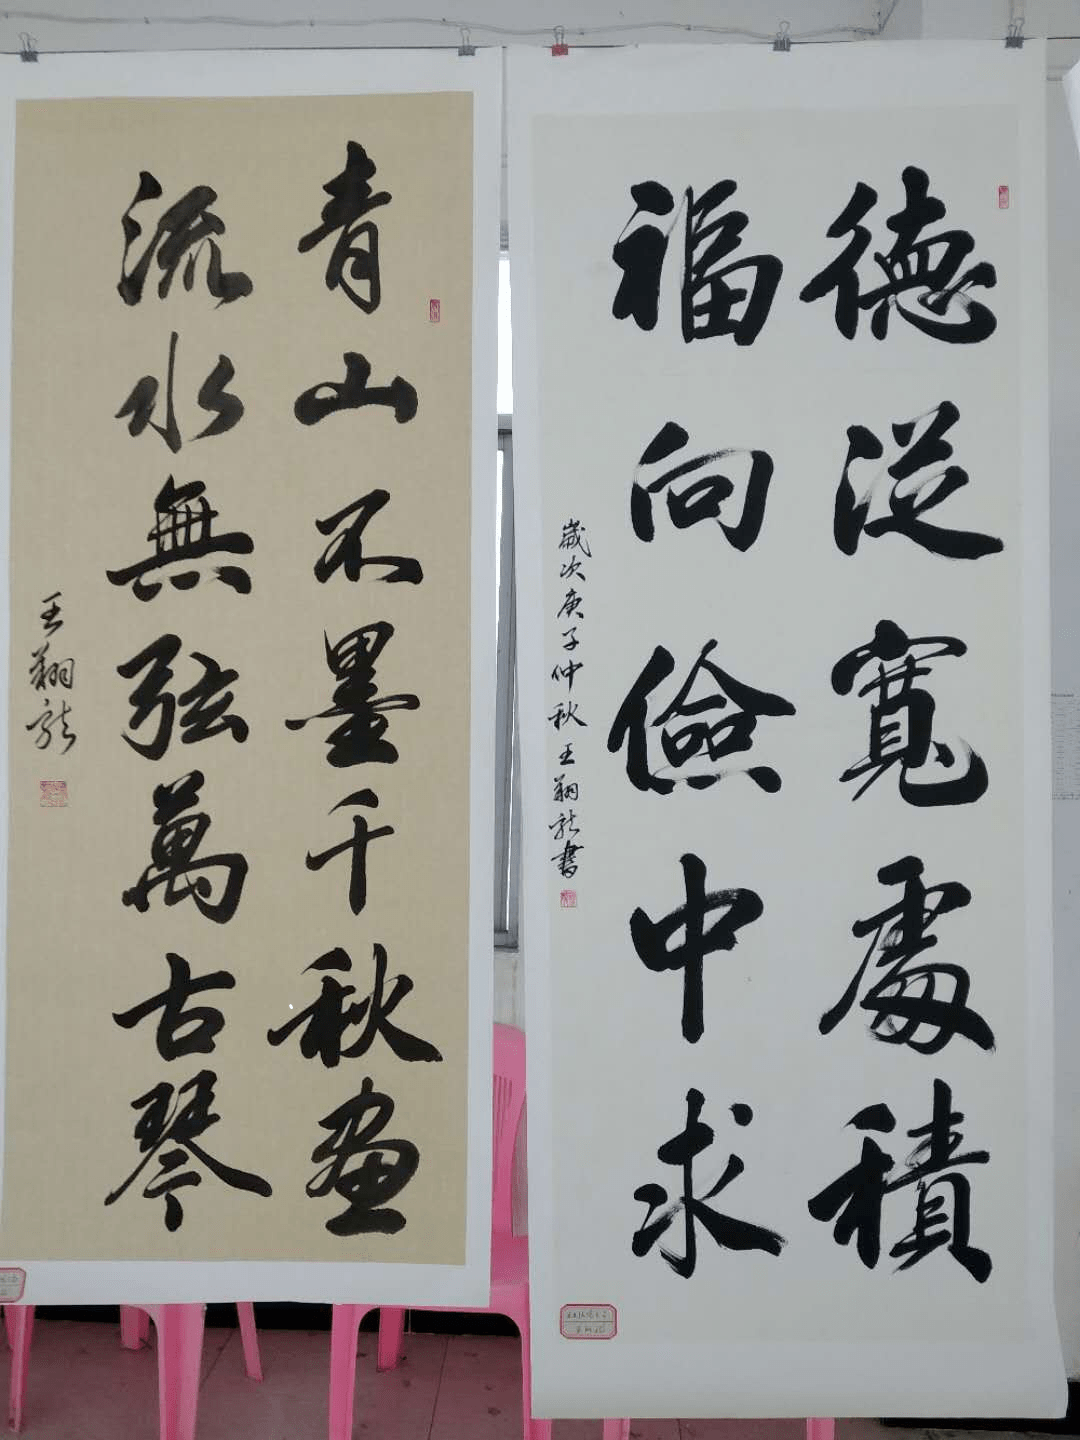 德從寬處積
福向儉中求
歲次庚子仲秋王翔龍書
青山不墨千秋畫
流水無弦萬古琴
王翔龍